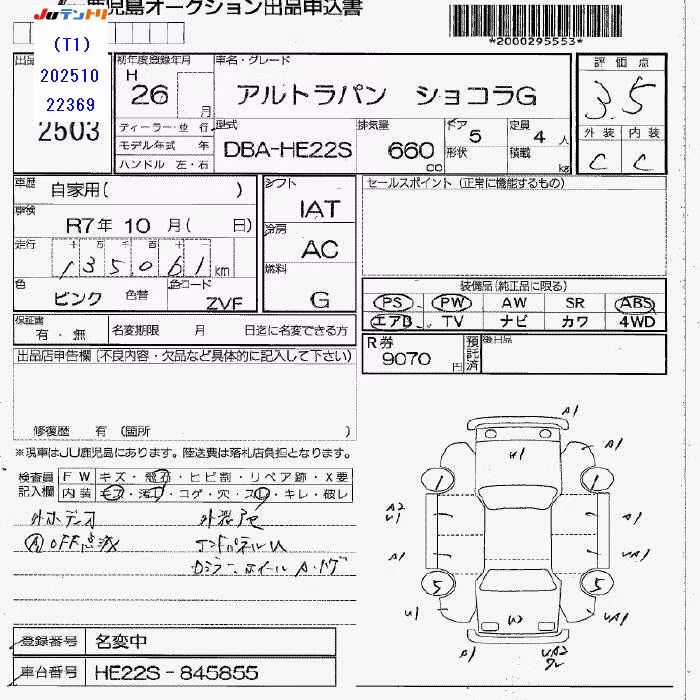 JUテントリ
鹿児島オークション出品申込書
*2000295553*
(T1)
202510
22369
出品
2503
初年度登録年月
H
26 月
ディーラー・並 行
モデル年式 年
ハンドル 左・右
車名・グレード
アルトラパン ショコラG
型式
DBA-HE22S
排気量
660
cc
ドア
5
形状
定員
4 人
積載
kg
評 価 点
3.5
外 装 内 装
C C
車歴
自家用( )
車検
R7年 10 月( 日)
走行
十 万 千 百 十 一
135,061 km
色
ピンク
色替
色コード
ZVF
シフト
IAT
冷房
AC
燃料
G
セールスポイント(正常に機能するもの)
装備品(純正品に限る)
PS PW AW SR ABS
エアB TV ナビ カワ 4WD
保証書
有・無
名変期限 月 日迄に名変できる方
R券
9070 円
預託済
後日品
出品店申告欄(不良内容・欠品など具体的に記入して下さい)
修復歴 有 (箇所 )
※現車はJU鹿児島にあります。陸送費は落札店負担となります。
検査員記入欄
FW キズ・飛石・ヒビ割・リペア跡・X要
内装 キズ・汚レ・コゲ・穴・スレ・キレ・破レ
A1
A1
U1
1
1
A2
U1
A1
A1
UA1
5
5
U1
UA1
A1
登録番号 名変中
車台番号 HE22S-845855